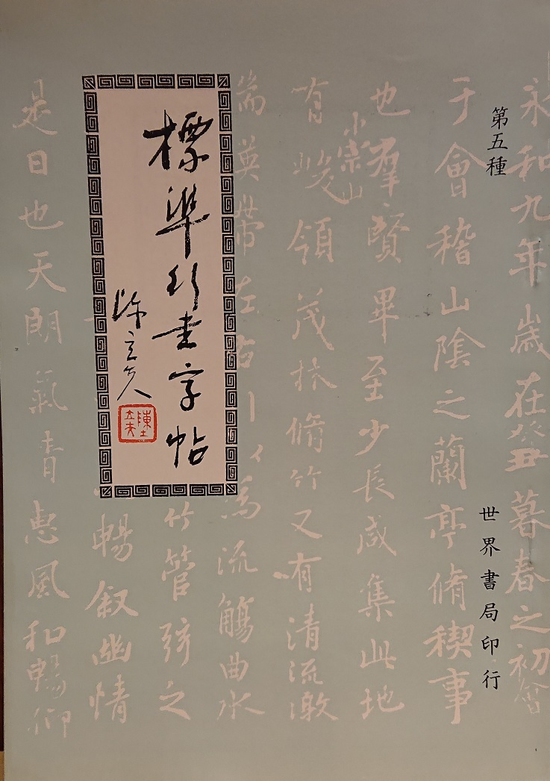 第五種
世界書局印行
標準行書字帖
陳立夫
陳立夫
永和九年歲在癸丑暮春之初會
于會稽山陰之蘭亭脩稧事
也羣賢畢至少長咸集此地
有崇山峻領茂林脩竹又有清流激
湍暎帶左右
為流觴曲水
竹管弦之
暢叙幽情
是日也天朗氣清惠風和暢仰